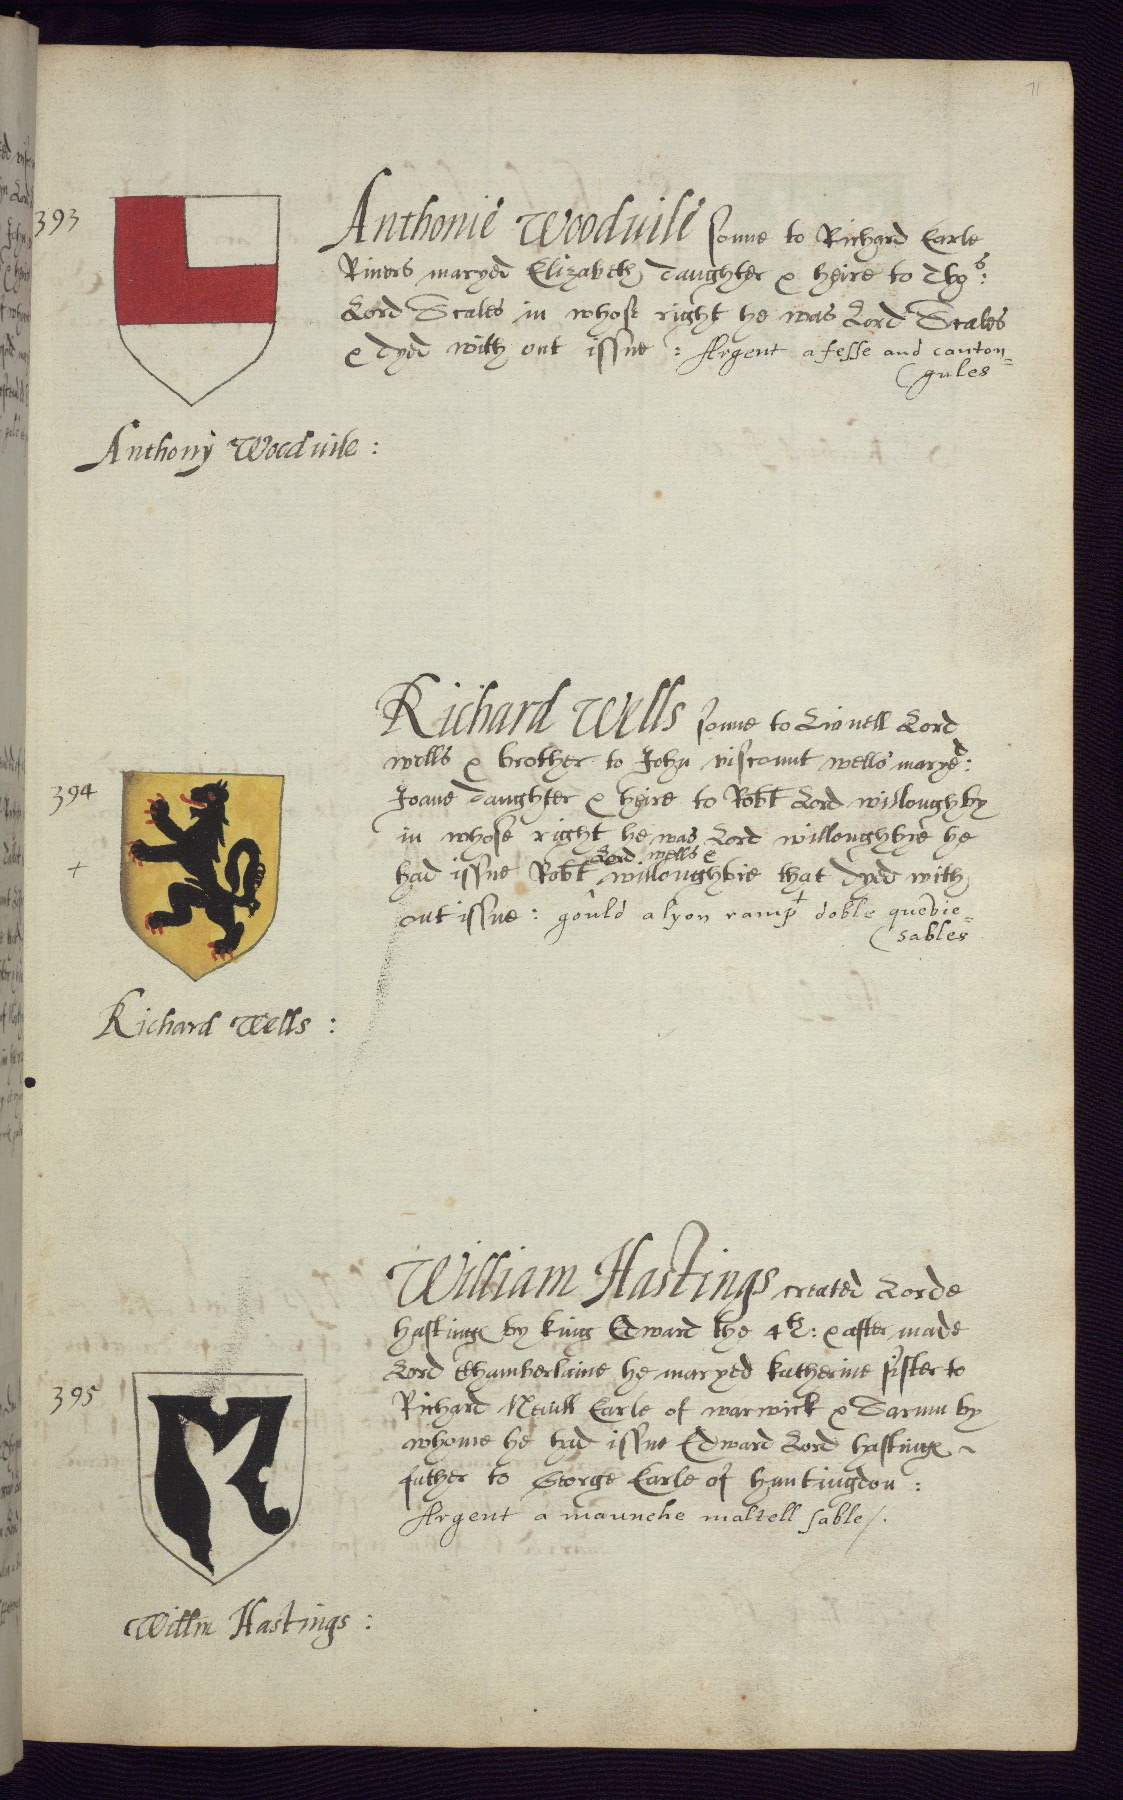 71
393
Anthonie Woodvile sonne to Richard Earle
Rivers maryed Elizabeth daughter & heire to Tho^s:
Lord Scales in whose right he was Lord Scales
& dyed with out issue : Argent a fesse and canton=
(gules
Anthony Woodvile :
394
+
Richard Wells sonne to Lionell Lord
wells & brother to John viscount wells maryed:
Joane daughter & heire to Robt Lord willoughby
in whose right he was Lord willoughbye he
Lord wells &
had issue Robt willoughbie that dyed with
out issue : gould a lyon ramp^t doble quevie=
(sables
Richard Wells :
395
William Hastings created Lorde
hastinges by king Edward the 4th: & after made
Lord Chamberlaine he maryed katherine sister to
Richard Nevill Earle of warwick & Sarum by
whome he had issue Edward Lord hastinges ~
father to George Earle of huntingdon :
Argent a maunche maltell sable/.
Willm Hastings :